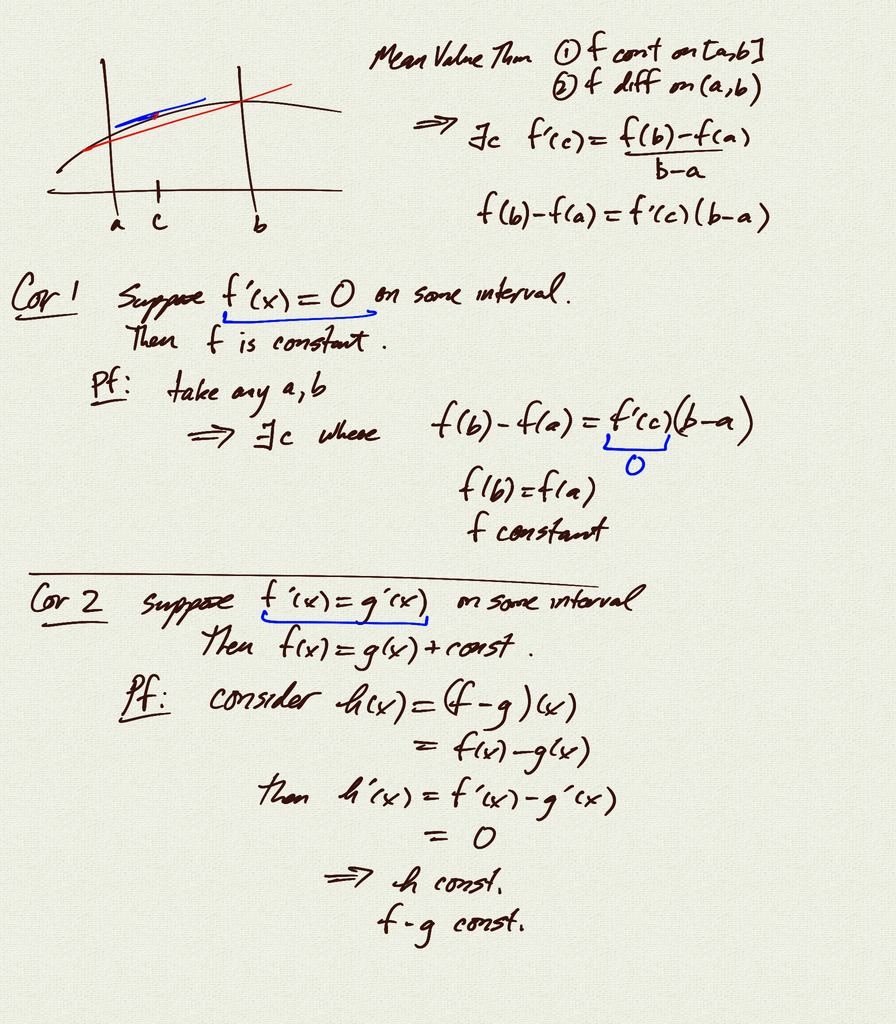 Mean Value Thm ① f cont on [a,b]
② f diff on (a,b)
⇒ ∃c f'(c) = f(b)-f(a)
b-a
f(b)-f(a) = f'(c)(b-a)
a c b
Cor 1 Suppose f'(x) = 0 on some interval.
Then f is constant.
Pf: take any a,b
⇒ ∃c where f(b)-f(a) = f'(c)(b-a)
0
f(b)=f(a)
f constant
Cor 2 Suppose f'(x) = g'(x) on some interval
Then f(x) = g(x) + const.
Pf: consider h(x) = (f-g)(x)
= f(x)-g(x)
then h'(x) = f'(x)-g'(x)
= 0
⇒ h const.
f-g const.